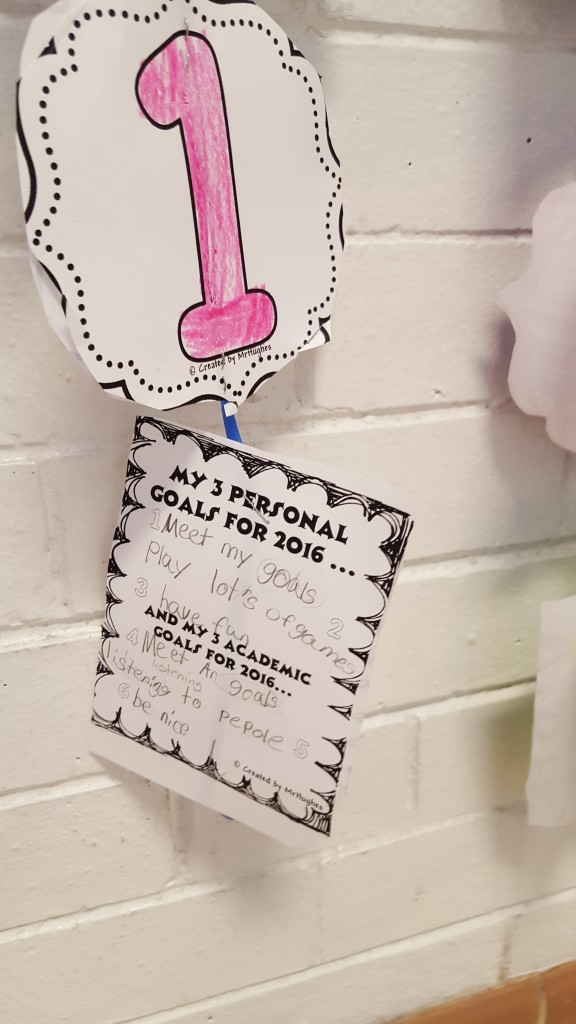 1
© Created by MrHughes
MY 3 PERSONAL
GOALS FOR 2016 ...
1 Meet my goals
play lot's of games 2
3 have fun
AND MY 3 ACADEMIC
GOALS FOR 2016...
4 Meet An goals
listening
listening to pepole 5
6 be nice
© Created by MrHughes